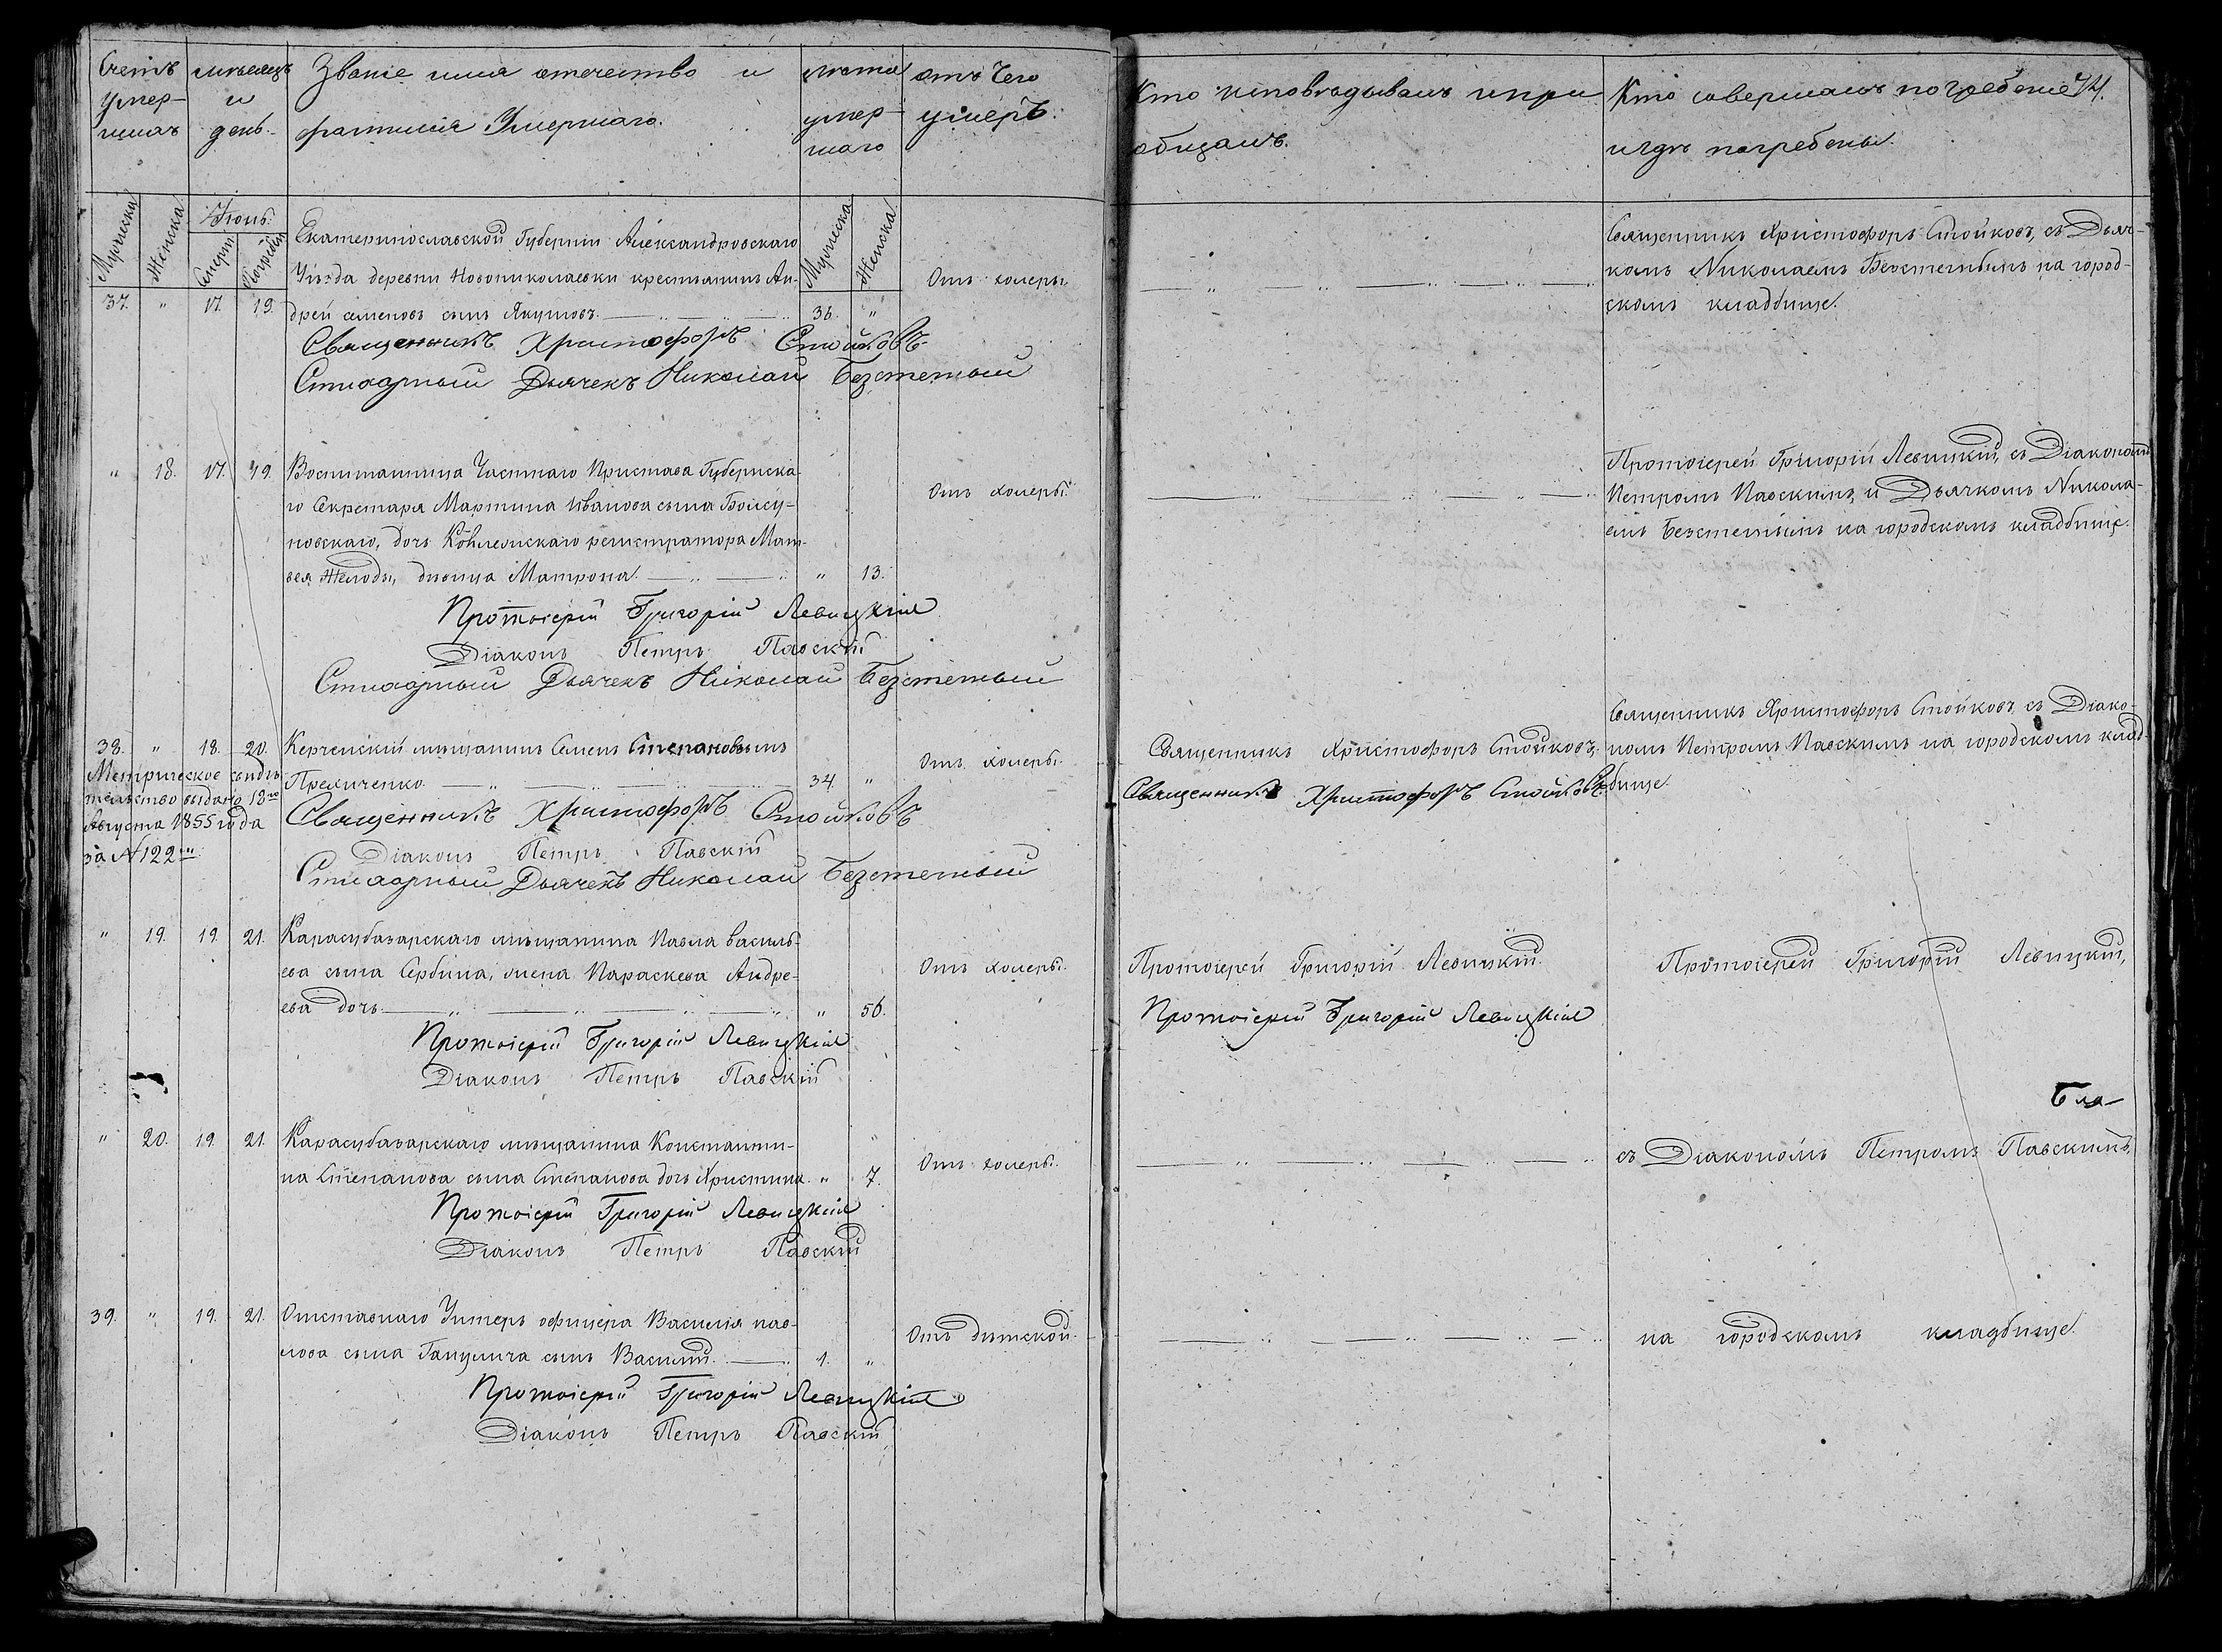 Счетъ умер-шихъ
мѣсяцъ и день.
Званіе имя отечество и
фамилія Умершаго.
лѣта умер-шаго
отъ чего
умеръ.
Кто исповѣдывалъ и прі
общалъ.
Кто совершалъ погребеніе 74.
и гдѣ погребены.
Мужеска
Женска
Іюнь.
Смерт.
Погребен.
Мужеска
Женска
Екатеринославской Губерніи Александровскаго
Уѣзда деревни Новониколаевки крестьянинъ Ан-
37. " 17. 19. дрей семеновъ сынъ Якуновъ. 36. "
Отъ холеры.
Священникъ Христофоръ Стойковъ, съ Дьяч-
комъ Николаемъ Безстетнымъ на город-
скомъ кладбище.
Священникъ Христофоръ Стойковъ
Стихарный Дьячекъ Николай Безстетный
" 18. 17. 19. Воспитанница Частнаго Пристава Губернска-
го Секретаря Мартина Иванова сына Бойсу-
новскаго, дочь Коллежскаго регистратора Мат-
вея Желоды, дѣвица Матрона. " 13.
Отъ холеры.
Протоіерей Григорій Левицкій, съ Діакономъ
Петромъ Павскимъ, и Дьячкомъ Никола-
емъ Безстетнымъ на городскомъ кладбище.
Протоіерей Григорій Левицкій
Діаконъ Петръ Павскій
Стихарный Дьячекъ Николай Безстетный
38. " 18. 20. Керченскій мѣщанинъ Семенъ Степановъ сынъ
Прехиченко 34. "
Отъ холеры.
Священникъ Христофоръ Стойковъ.
Священникъ Христофоръ Стойковъ
Священникъ Христофоръ Стойковъ, съ Діако-
номъ Петромъ Павскимъ на городскомъ клад-
бище.
Метрическое свидѣ
тельство выдано 18го
Августа 1855 года
за № 122мъ
Священникъ Христофоръ Стойковъ
Діаконъ Петръ Павскій
Стихарный Дьячекъ Николай Безстетный
" 19. 19. 21. Карасубазарскаго мѣщанина Павла василь-
ева сына Сербина, жена Параскева Андре-
ева дочь. " 56.
Отъ холеры.
Протоіерей Григорій Левицкій.
Протоіерей Григорій Левицкій
Протоіерей Григорій Левицкій,
Протоіерей Григорій Левицкій
Діаконъ Петръ Павскій
Бла-
" 20. 19. 21. Карасубазарскаго мѣщанина Константи-
на Степанова сына Степанова дочь Христина. " 7.
Отъ холеры.
съ Діакономъ Петромъ Павскимъ,
Протоіерей Григорій Левицкій
Діаконъ Петръ Павскій
39. " 19. 21. Отставнаго Унтеръ офицера Василія пав-
лова сына Ганцлича сынъ Василій. 1. "
Отъ дѣтской.
на городскомъ кладбище.
Протоіерей Григорій Левицкій
Діаконъ Петръ Павскій